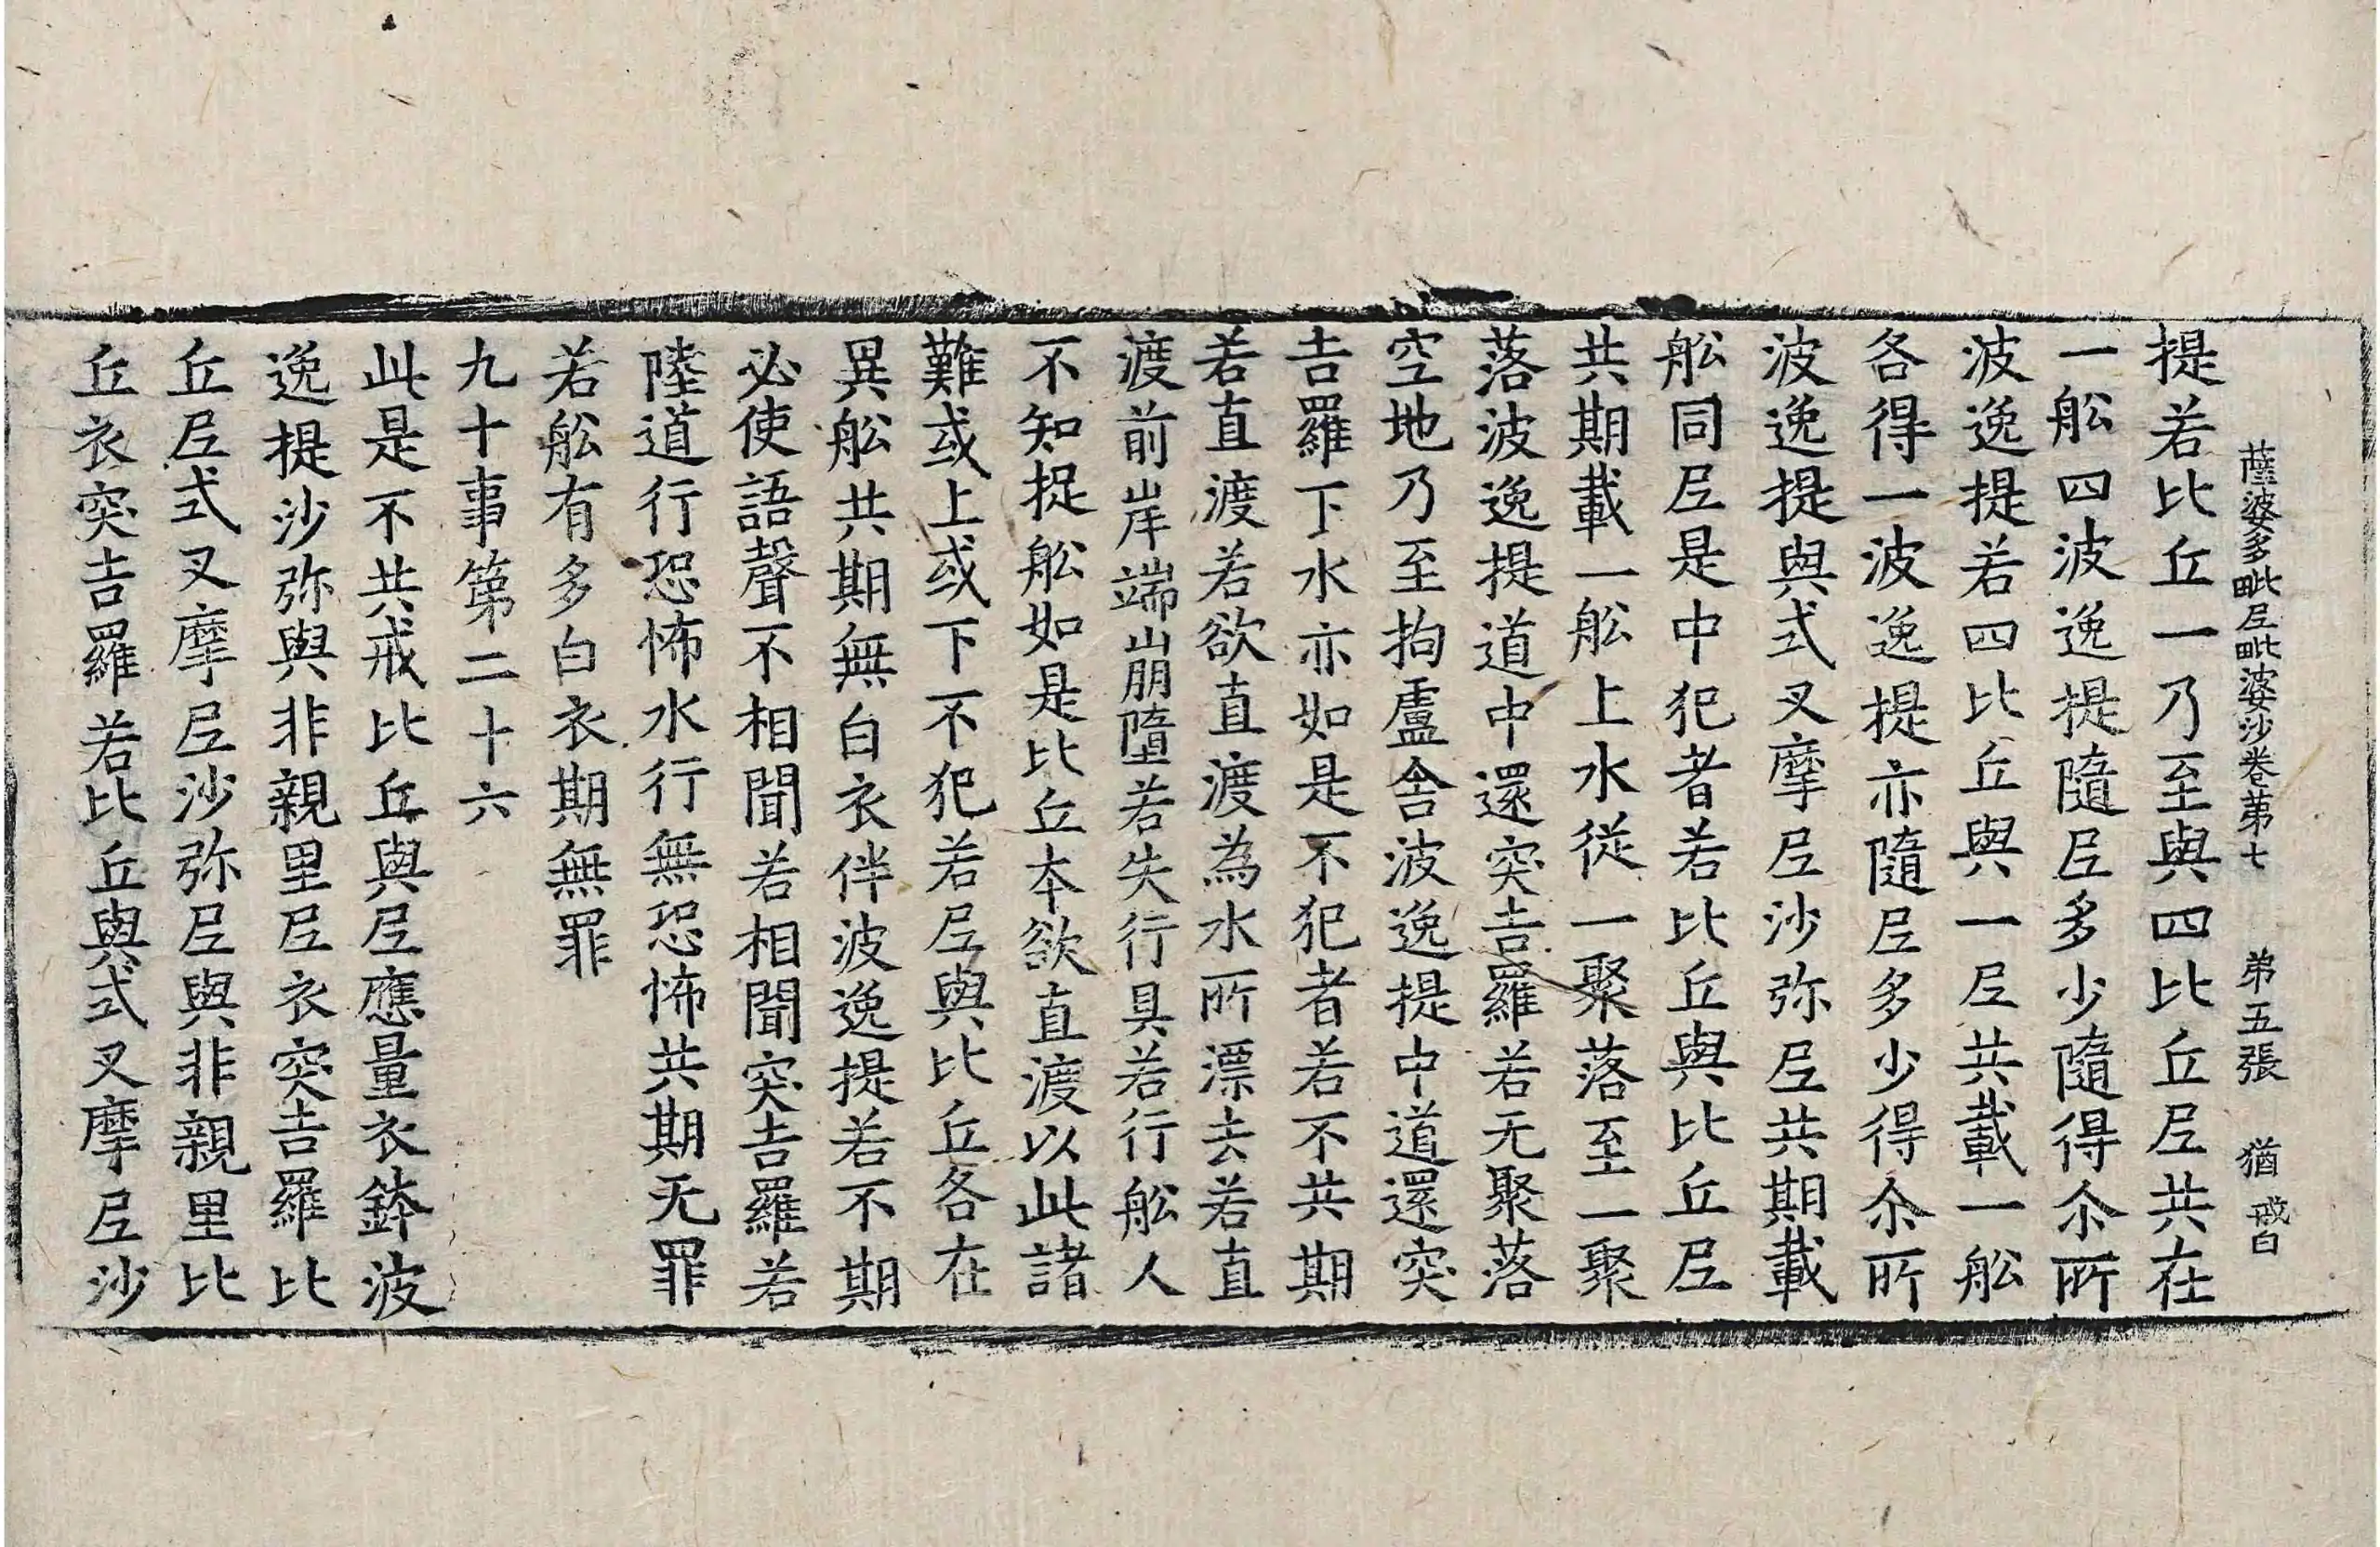 薩婆多毗尼毗婆沙卷苐七 苐五張 猶
提若比丘一乃至與四比丘尼共在
一舩四波逸提隨尼多少隨得尒所
波逸提若四比丘與一尼共載一舩
各得一波逸提亦隨尼多少得尒所
波逸提與式叉摩尼沙弥尼共期載
舩同尼是中犯者若比丘與比丘尼
共期載一舩上水從一聚落至一聚
落波逸提道中還突吉羅若无聚落
空地乃至拘盧舍波逸提中道還突
吉羅下水亦如是不犯者若不共期
若直渡若欲直渡為水所漂去若直
渡前岸端崩墮若失行具若行舩人
不知捉舩如是比丘本欲直渡以此諸
難或上或下不犯若尼與比丘各在
異舩共期無白衣伴波逸提若不期
必使語聲不相聞若相聞突吉羅若
陸道行恐怖水行無恐怖共期无罪
若舩有多白衣期無罪
九十事第二十六
此是不共戒比丘與尼應量衣鉢波
逸提沙弥與非親里尼衣突吉羅比
丘尼式叉摩尼沙弥尼與非親里比
丘衣突吉羅若比丘與式叉摩尼沙